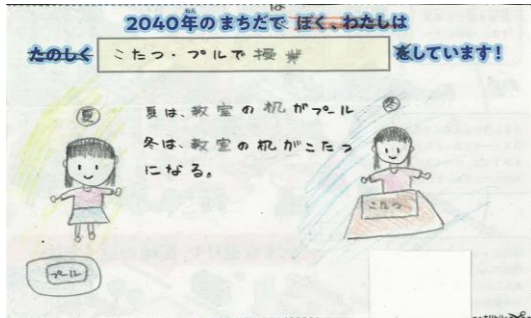 2040年のまちだで ぼく、わたしは
たのしく こたつ・プルで授業 をしています!
夏
夏は、教室の机がプール
冬は、教室の机がこたつ
になる。
冬
こたつ
プール